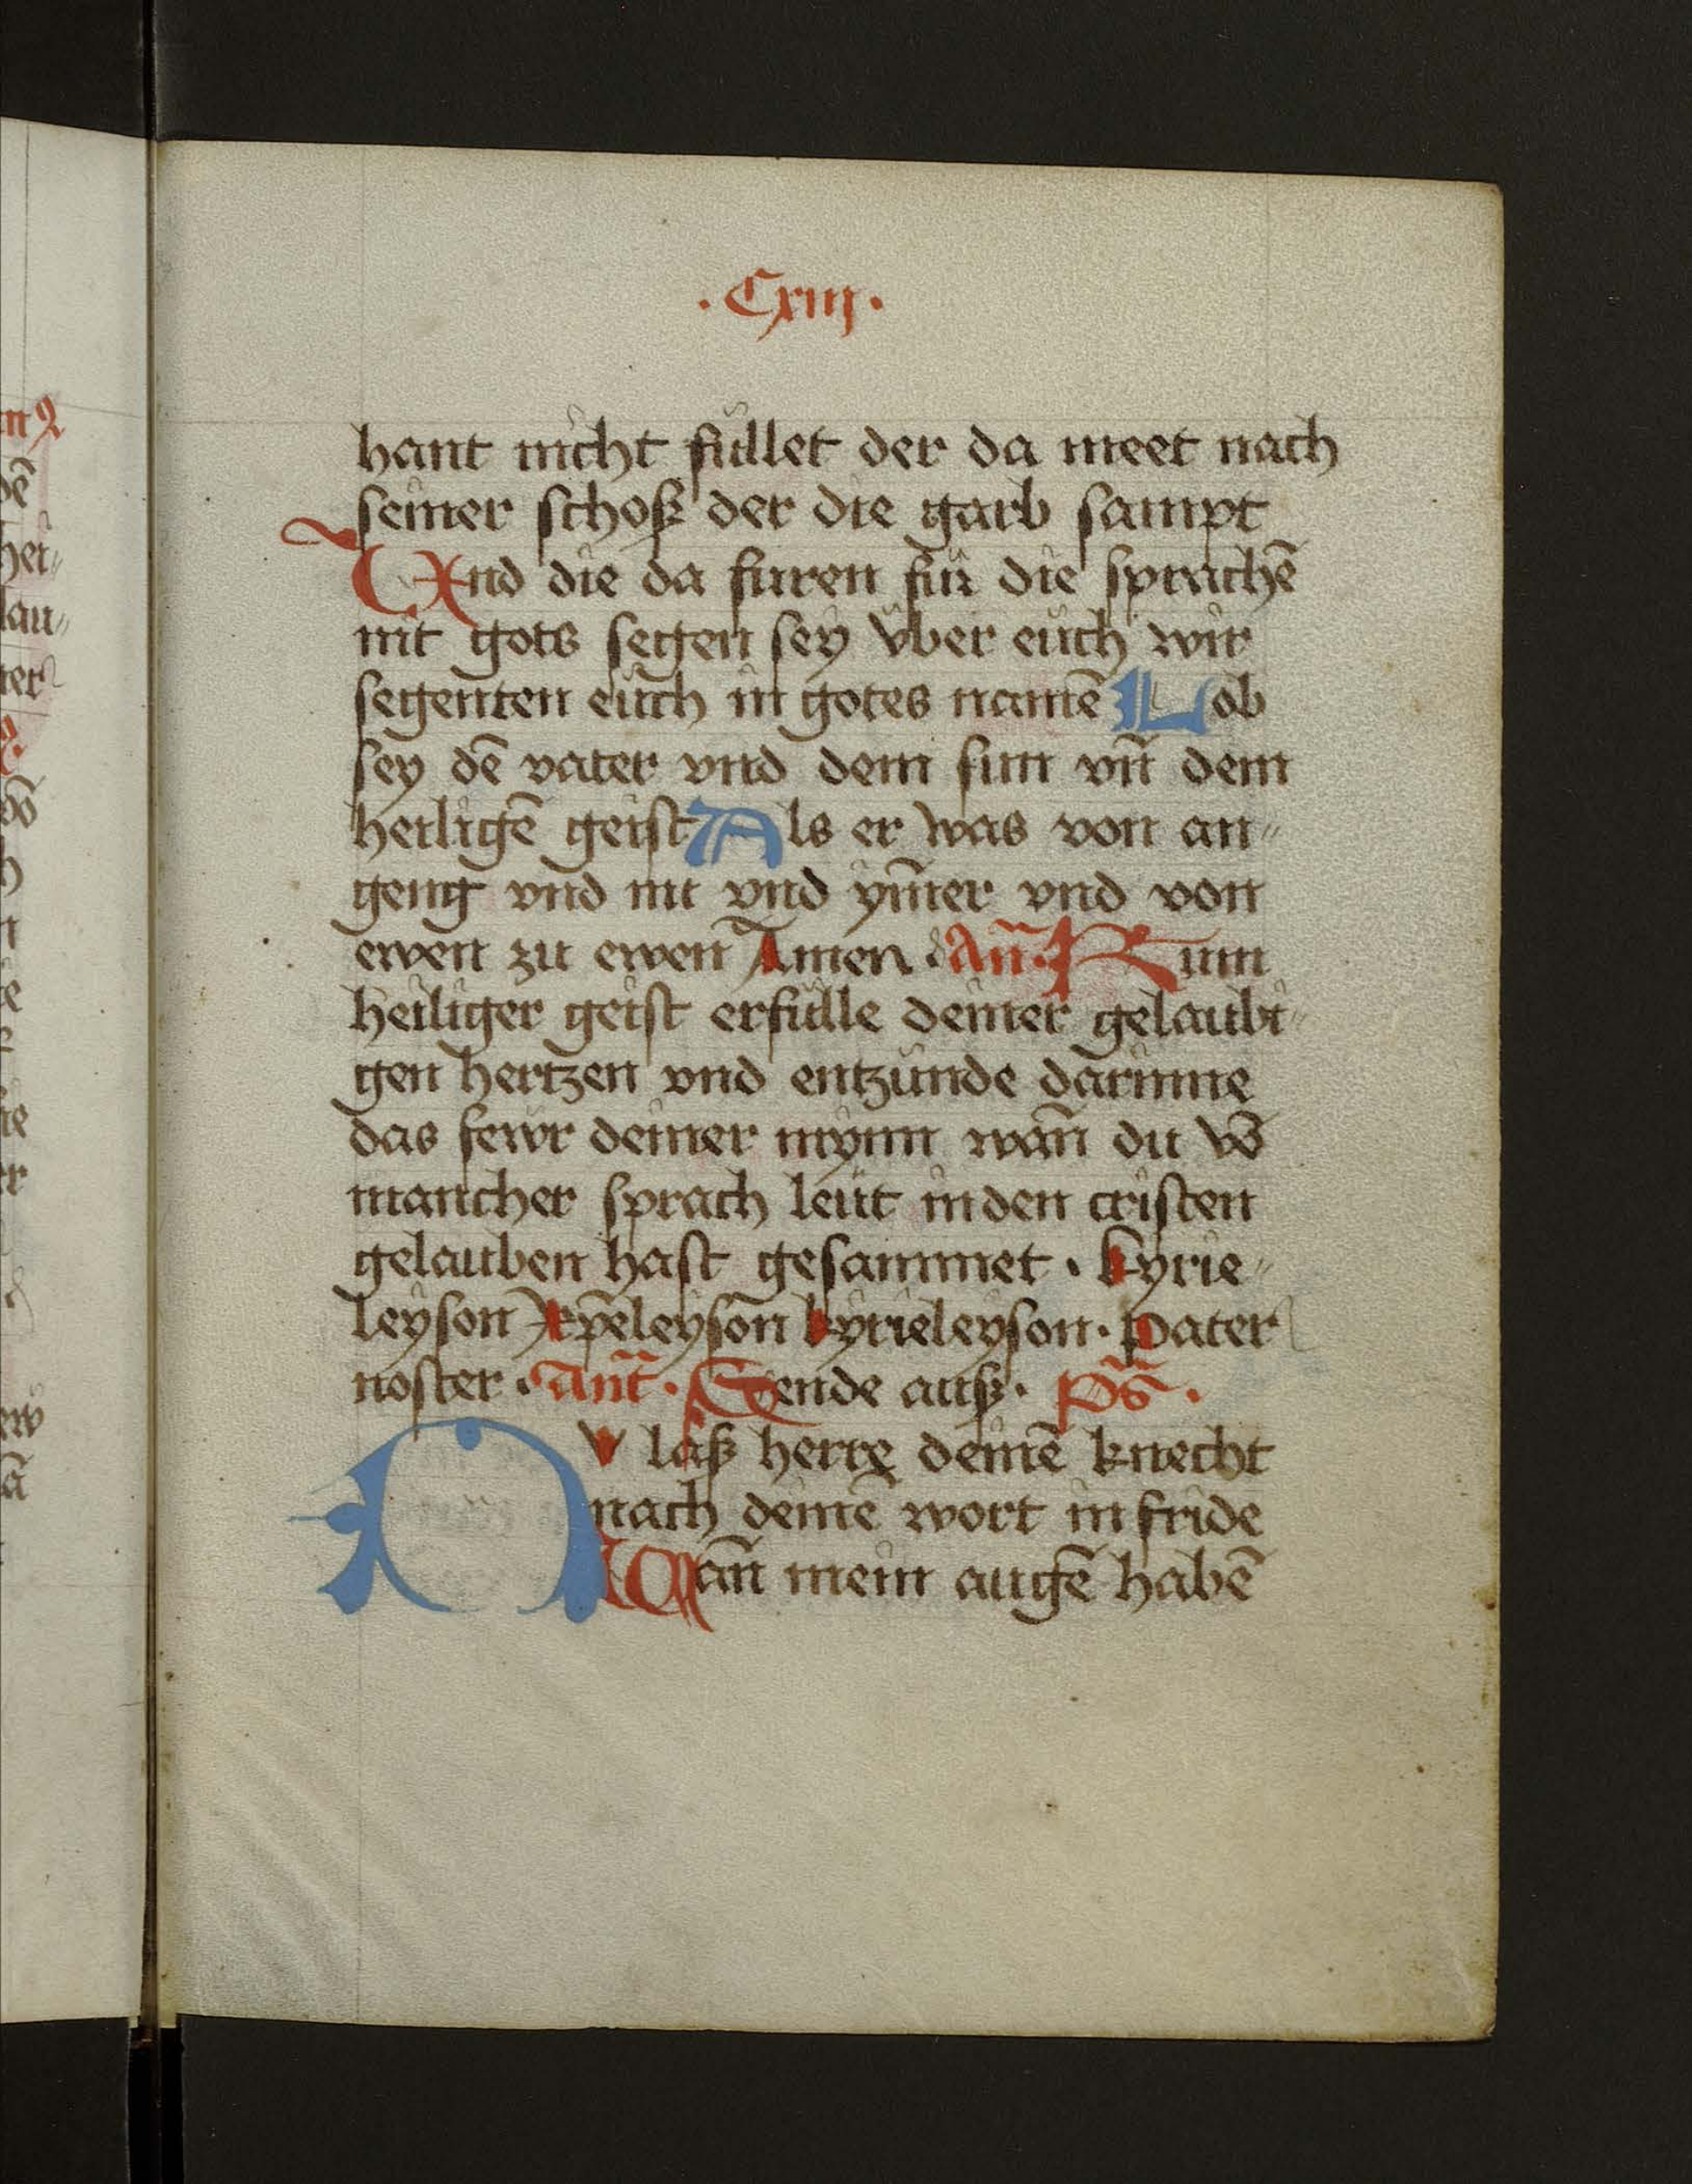 ·Cxiij·
hant nicht füllet der da meet nach
seiner schoß der die garb sampt
Vnd die da furen für die sprachē
nit gots segen sey vber euch wir
segenten euch in gotes namē Lob
sey dē vater vnd dem sun vn̄ dem
heiligē geist Als er was von an„
geng vnd nu vnd ym̄er vnd von
ewen zu ewen Amen · An̄· Kum
heiliger geist erfülle deiner gelaubi„
gen hertzen vnd entzünde darinne
das fewr deiner mynn wan̄ du vō
mancher sprach leüt in den cristen
gelauben hast gesammet · kyrie„
leyson xp̄eleyson kyrieleyson · pater
noster · Ant̄· Sende auß· Ps̄·
NV laß herre deinē knecht
nach deinē wort in fride
Wan̄ mein augē habē